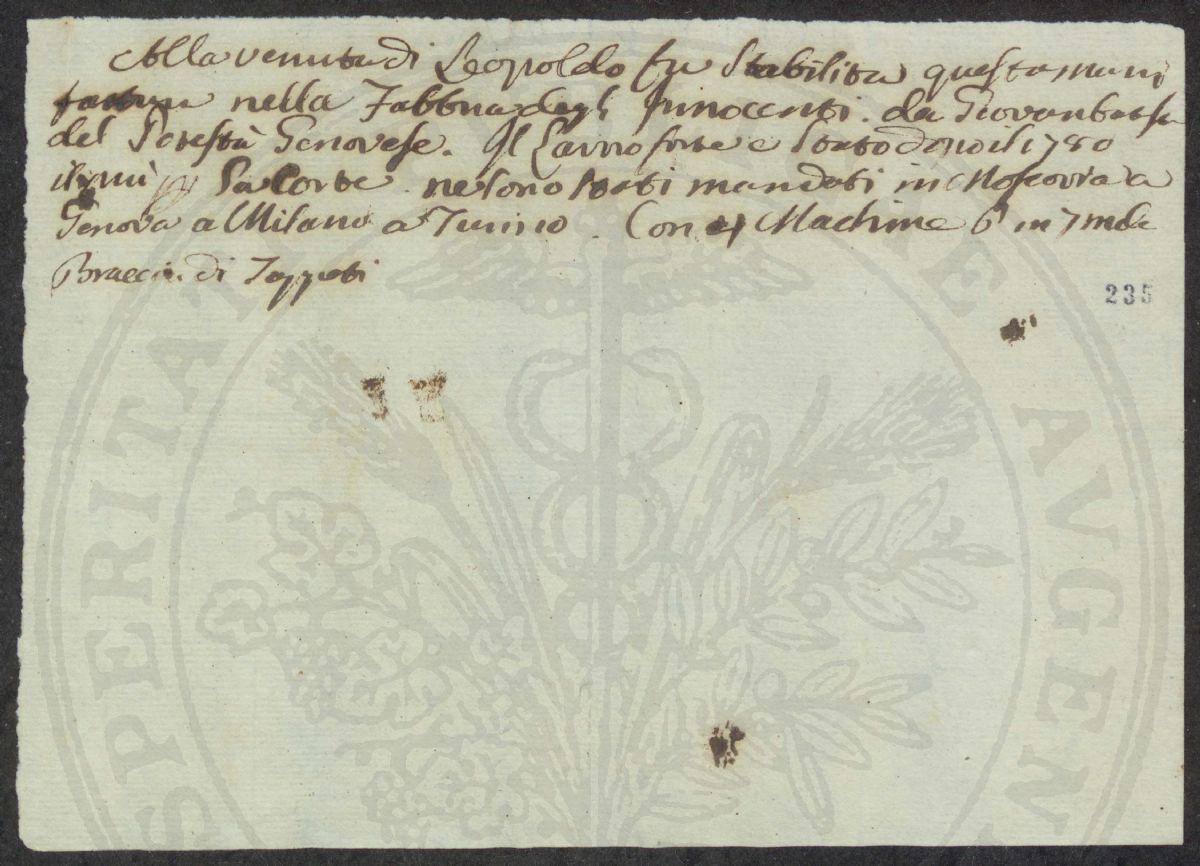 Alla venuta di Leopoldo fu Stabilita questa mani
fattura nella Fabbrica degl Innocenti. da Giovanbatsta
del Podestà Genovese. Il Lavoro forte e stato dopo il 1780
La Corte ne sono stati mandati in Moscovia a
Genova a Milano a Turino. Con 4 Machine 6 in 7 mila
Braccia di Tappeti
235
SPERITAT
AVGEN